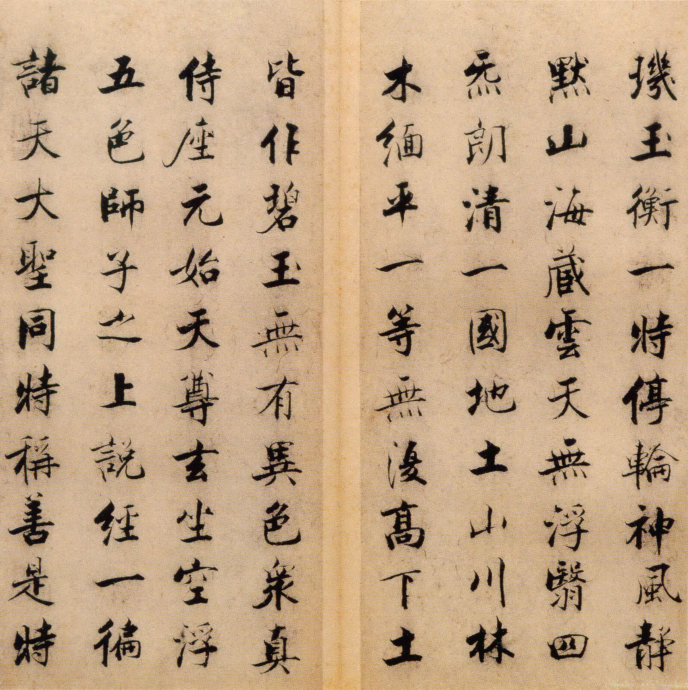 璣玉衡一時停輪神風静
默山海藏雲天無浮翳四
炁朗清一國地土山川林
木緬平一等無復高下土
皆作碧玉無有異色衆真
侍座元始天尊玄坐空浮
五色師子之上説經一徧
諸天大聖同時稱善是時